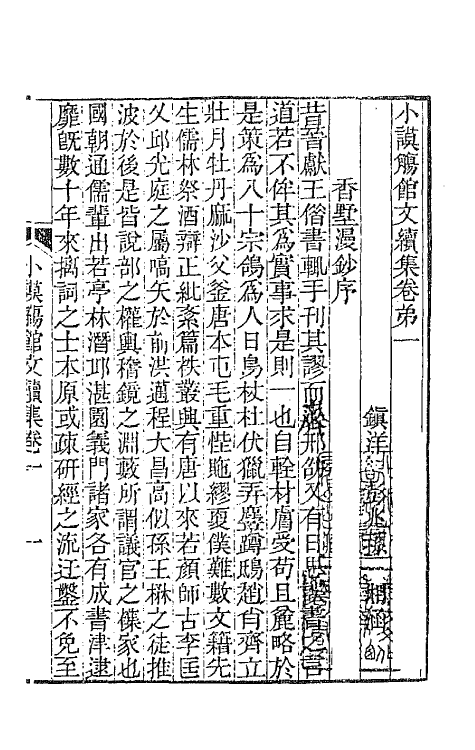 小謨觴館文續集卷弟一
鎮洋彭兆蓀
香墅漫鈔序
昔晉獻王借書輒手刊其謬而邢邵又有日思誤書之言
道若不侔其爲實事求是則一也自輇材膚受苟且麄略於
是策爲八十宗鴿爲人日鳥杕杜伏獵弄麞蹲鴟趙肯齊立
牡月牡丹麻沙父釜唐本芼毛重悂貤繆更僕難數文籍先
生儒林祭酒辯正紕紊篇袟叢興有唐以來若顏師古李匡
乂邱光庭之屬嚆矢於前洪邁程大昌高似孫王楙之徒推
波於後是皆說部之權輿稽鏡之淵藪所謂議官之傑家也
國朝通儒輩出若亭林潛邱湛園義門諸家各有成書津逮
靡旣數十年來摛詞之士本原或疎研經之流迂鑿不免至
小謨觴館文續集卷一
一